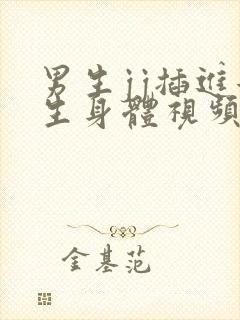 男生jj插進
生身體視頻
金基范